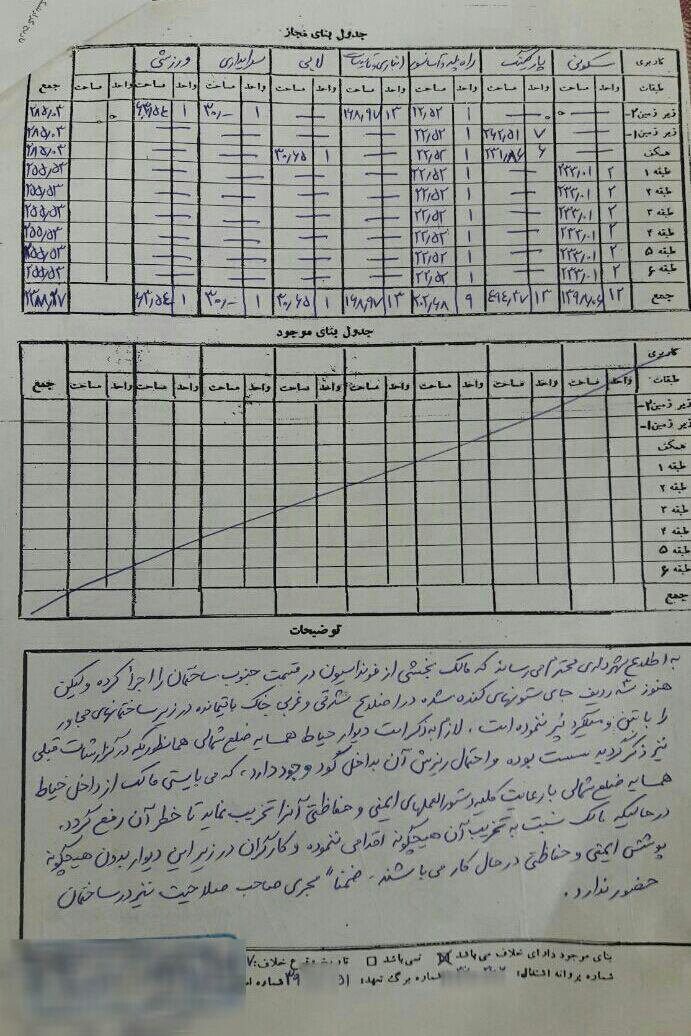 جدول بنای مجاز
کاربری سکونی پارکینگ راه پله و آسانسور انباری و تاسیسات لابی سرایداری ورزشی
طبقات واحد مساحت واحد مساحت واحد مساحت واحد مساحت واحد مساحت واحد مساحت واحد مساحت واحد مساحت جمع
زیر زمین ۲- — — ۱ ۲۲٫۵۲ ۱۳ ۱۶۸٫۹۷ — ۱ ۳۰٫۰۰ ۱ ۶۳٫۵۴ ۲۸۵٫۰۳
زیر زمین ۱- — ۷ ۲۶۲٫۵۱ ۱ ۲۲٫۵۲ — — — — ۲۸۵٫۰۳
همکف — ۶ ۲۳۱٫۸۶ ۱ ۲۲٫۵۲ — ۱ ۳۰٫۶۵ — — ۲۸۵٫۰۳
طبقه ۱ ۲ ۲۳۳٫۰۱ — ۱ ۲۲٫۵۲ — — — — ۲۵۵٫۵۳
طبقه ۲ ۲ ۲۳۳٫۰۱ — ۱ ۲۲٫۵۲ — — — — ۲۵۵٫۵۳
طبقه ۳ ۲ ۲۳۳٫۰۱ — ۱ ۲۲٫۵۲ — — — — ۲۵۵٫۵۳
طبقه ۴ ۲ ۲۳۳٫۰۱ — ۱ ۲۲٫۵۲ — — — — ۲۵۵٫۵۳
طبقه ۵ ۲ ۲۳۳٫۰۱ — ۱ ۲۲٫۵۲ — — — — ۲۵۵٫۵۳
طبقه ۶ ۲ ۲۳۳٫۰۱ — ۱ ۲۲٫۵۲ — — — — ۲۵۵٫۵۳
جمع ۱۲ ۱۳۹۸٫۰۶ ۱۳ ۴۹۴٫۳۷ ۹ ۲۰۲٫۶۸ ۱۳ ۱۶۸٫۹۷ ۱ ۳۰٫۶۵ ۱ ۳۰٫۰۰ ۱ ۶۳٫۵۴ ۲۳۸۸٫۲۷
جدول بنای موجود
کاربری
طبقات واحد مساحت واحد مساحت واحد مساحت واحد مساحت واحد مساحت واحد مساحت واحد مساحت واحد مساحت جمع
زیر زمین ۲-
زیر زمین ۱-
همکف
طبقه ۱
طبقه ۲
طبقه ۳
طبقه ۴
طبقه ۵
طبقه ۶
جمع
توضیحات
به اطلاع شهرداری محترم می رساند که مالک بخشی از فونداسیون در قسمت جنوب ساختمان را اجرا کرده ولیکن
هنوز سه ردیف جای ستونهای کنده شده در اضلاع شرقی و غربی چاک باقیمانده در زیر ساختمانهای مجاور
را با بتن و میلگرد پر ننموده است. لازم به ذکر است دیوار حیاط همسایه ضلع شمالی همانطوریکه در گزارشات قبلی
نیز ذکر گردید سست بوده و احتمال ریزش آن بداخل گود وجود دارد، که می بایستی مالک از داخل حیاط
همسایه ضلع شمالی با رعایت کلیه دستورالعملهای ایمنی و حفاظتی آنرا تخریب نماید تا خطر آن رفع گردد.
در حالیکه مالک نسبت به تخریب آن هیچگونه اقدامی ننموده و کارگران در زیر این دیوار بدون هیچگونه
پوشش ایمنی و حفاظتی در حال کار می باشند. ضمناً مجری صاحب صلاحیت نیز در ساختمان
حضور ندارد.
بنای موجود دارای خلاف می باشد ☒ نمی باشد ☐ خلاف:
شماره پروانه اشتغال: شماره برگ تعهد: